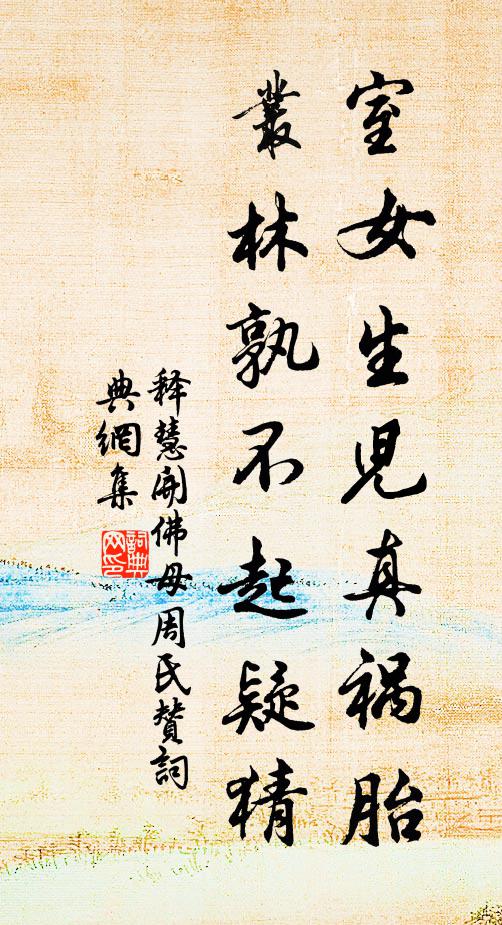 室女生児真禍胎
叢林孰不起疑猜
釋慧開佛母周氏贊詞
典網集
詞典网印